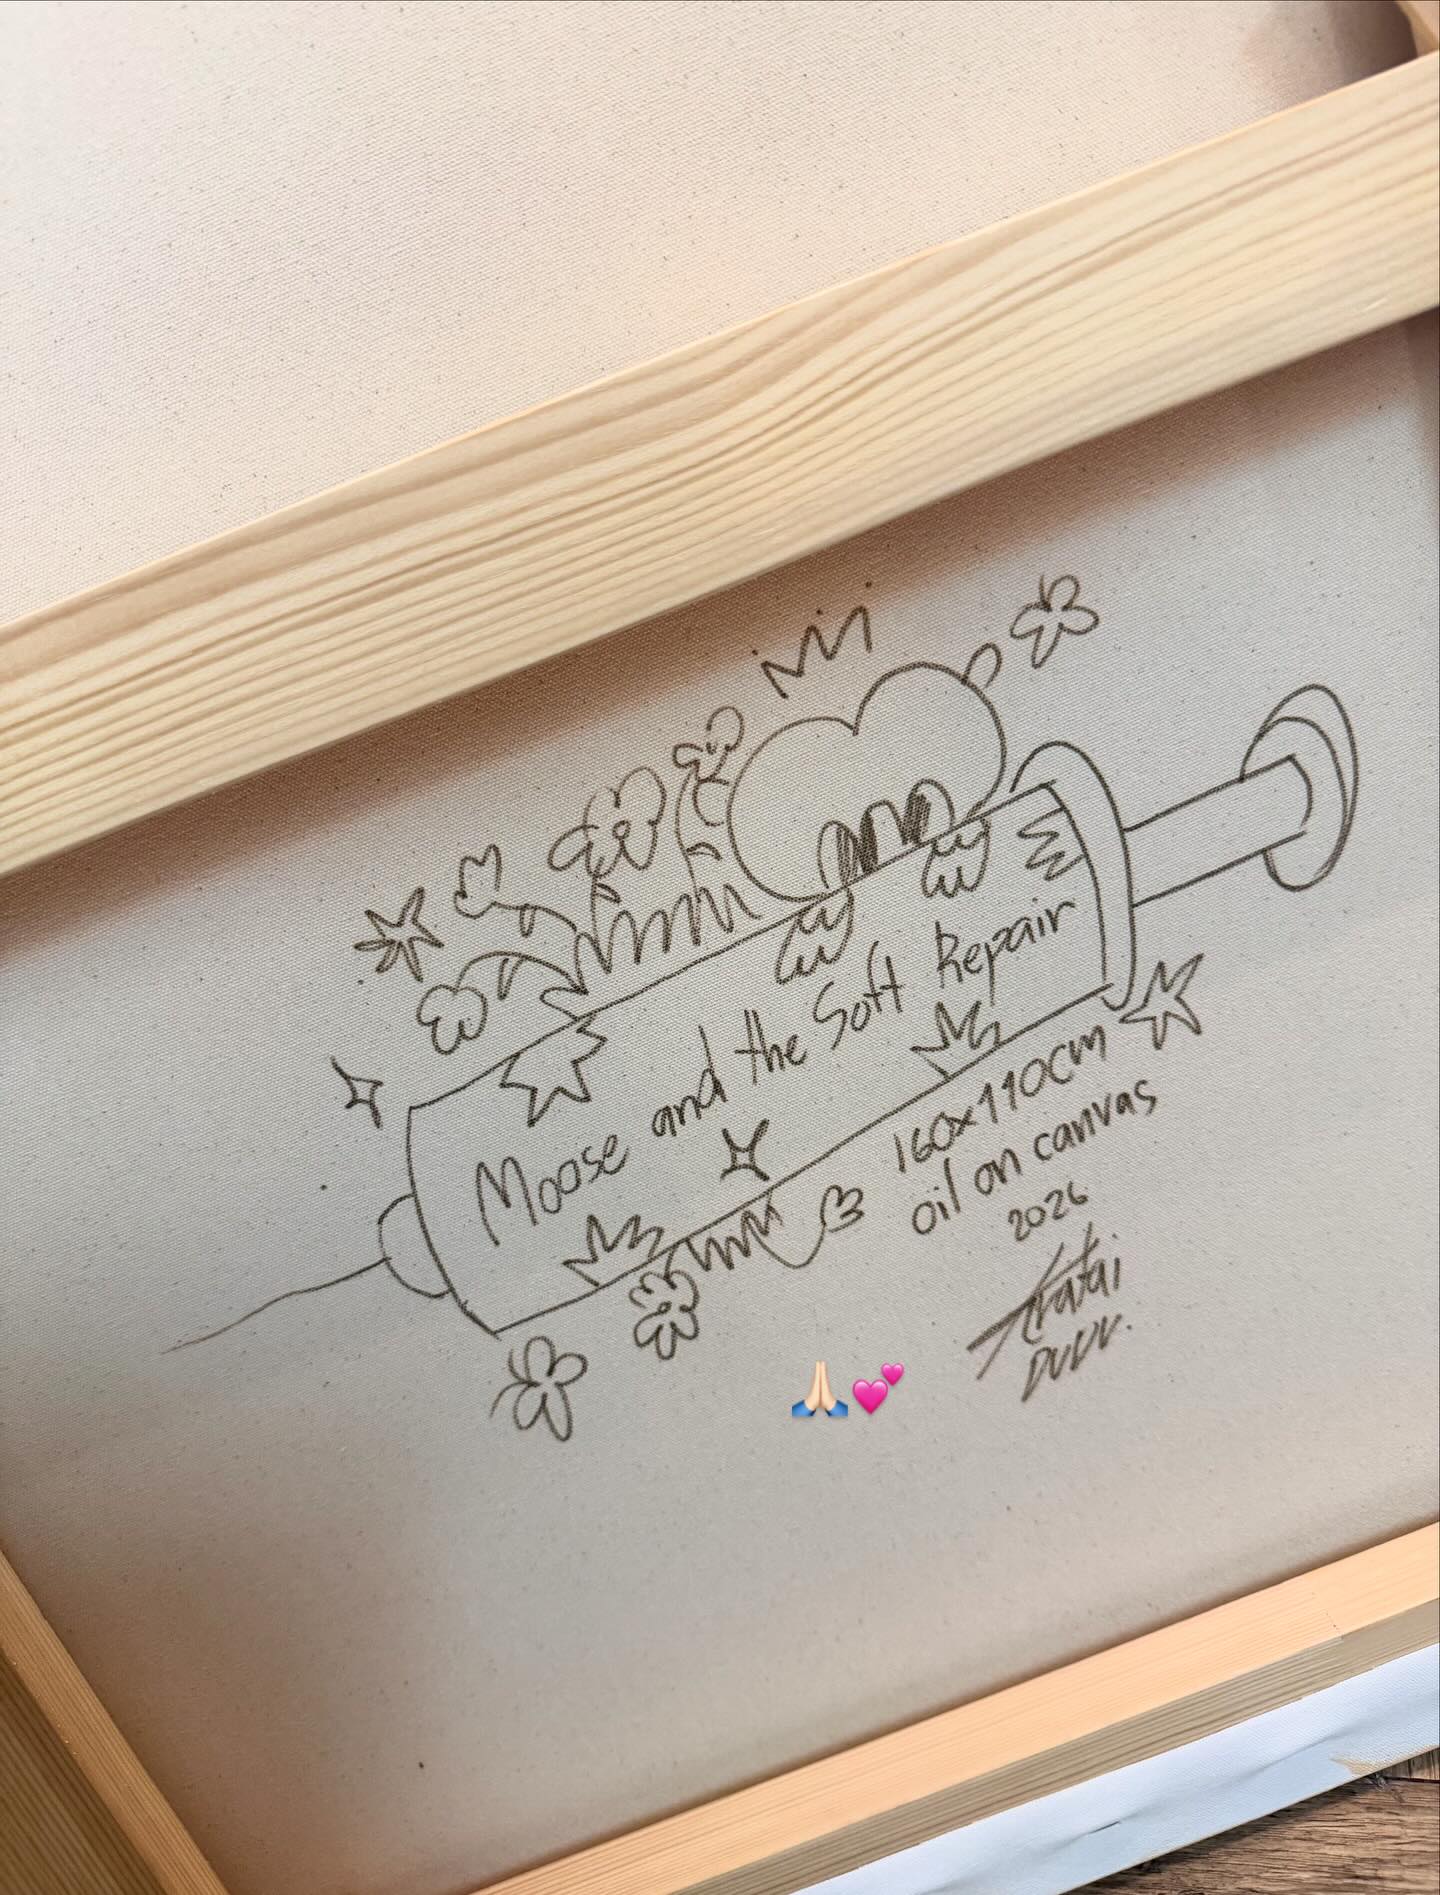 Moose and the Soft Repair
160x110cm
oil on canvas
2026